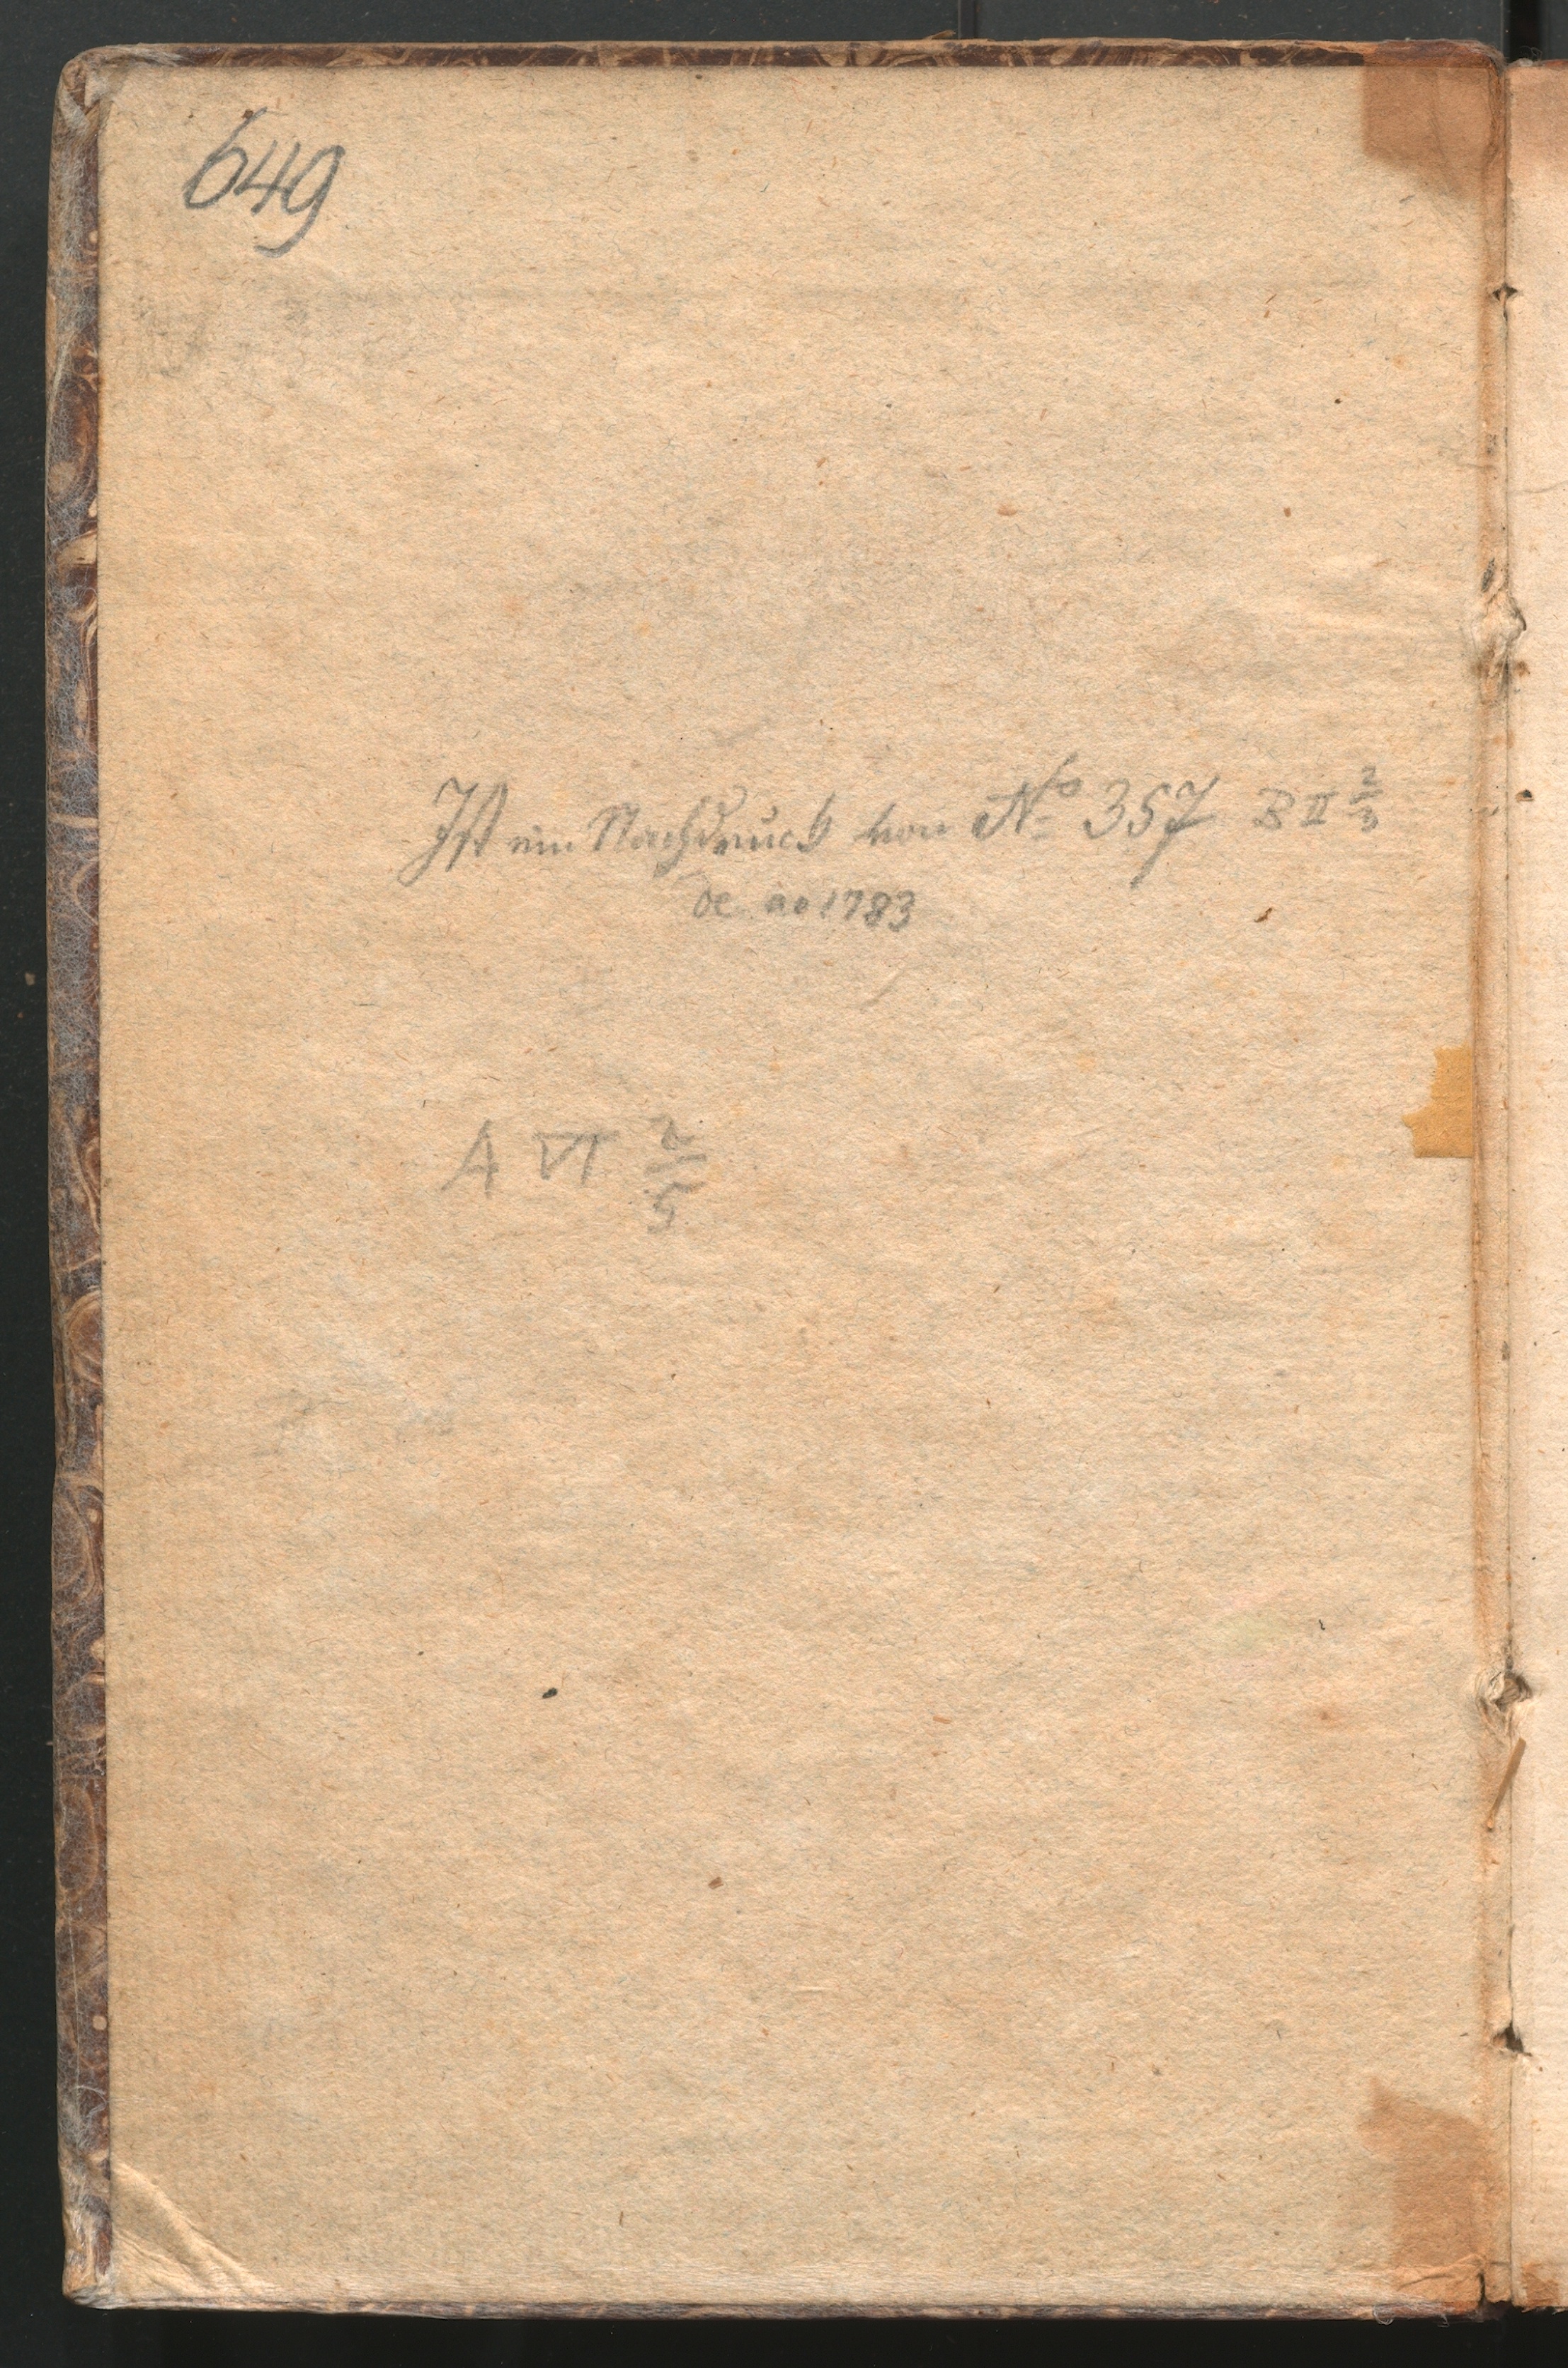 649
Ist ein Nachdruck von No 357 B II 2/3
de ao 1783
A VI 2/5